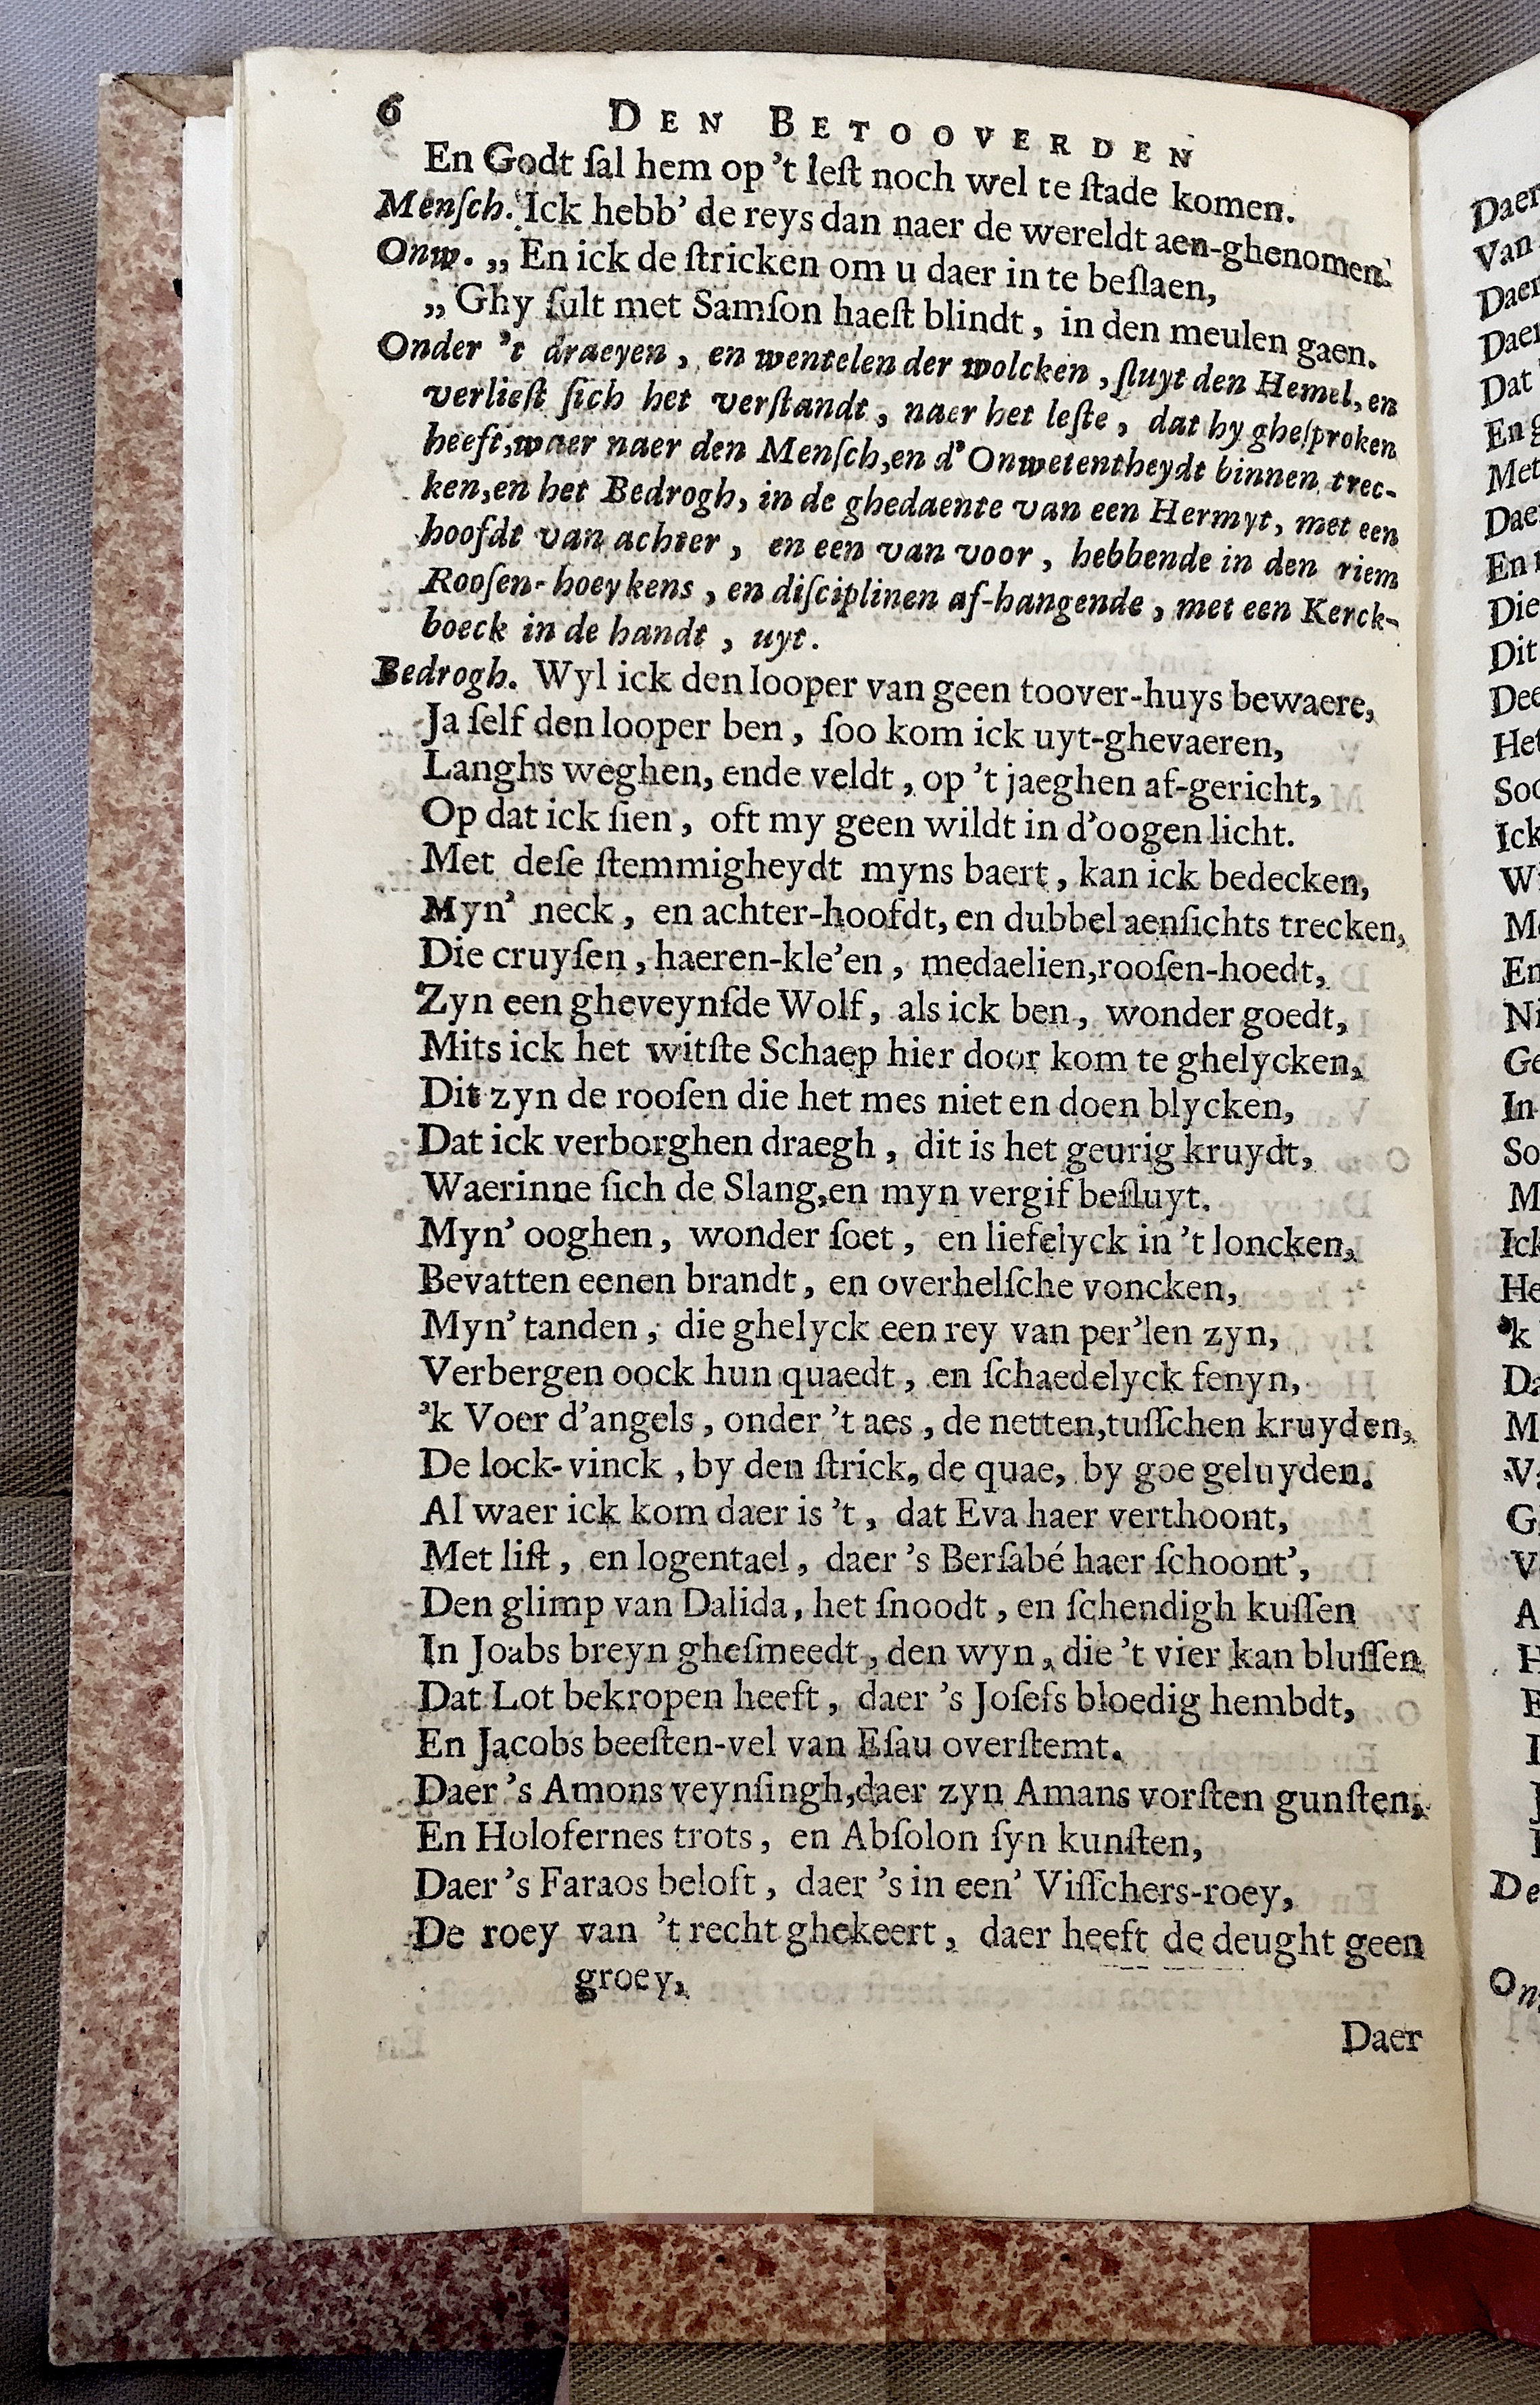 6 DEN BETOOVERDEN
En Godt ſal hem op 't leſt noch wel te ſtade komen.
Menſch. Ick hebb' de reys dan naer de wereldt aen-ghenomen.
Onw. „ En ick de ſtricken om u daer in te beſlaen,
„ Ghy ſult met Samſon haeſt blindt, in den meulen gaen.
Onder 't draeyen, en wentelen der wolcken, ſluyt den Hemel, en
verlieſt ſich het verſtandt, naer het leſte, dat hy gheſproken
heeft, waer naer den Menſch, en d'Onwetentheydt binnen trec-
ken, en het Bedrogh, in de ghedaente van een Hermyt, met een
hoofdt van achter, en een van voor, hebbende in den riem
Rooſen-hoeykens, en diſciplinen af-hangende, met een Kerck-
boeck in de handt, uyt.
Bedrogh. Wyl ick den looper van geen toover-huys bewaere,
Ja ſelf den looper ben, ſoo kom ick uyt-ghevaeren,
Langhs weghen, ende veldt, op 't jaeghen af-gericht,
Op dat ick ſien, oft my geen wildt in d'oogen licht.
Met deſe ſtemmigheydt myns baert, kan ick bedecken,
Myn' neck, en achter-hoofdt, en dubbel aenſichts trecken,
Die cruyſen, haeren-kle'en, medaelien, rooſen-hoedt,
Zyn een gheveynſde Wolf, als ick ben, wonder goedt,
Mits ick het witſte Schaep hier door kom te ghelycken,
Dit zyn de rooſen die het mes niet en doen blycken,
Dat ick verborghen draegh, dit is het geurig kruydt,
Waerinne ſich de Slang, en myn vergif beſluyt.
Myn' ooghen, wonder ſoet, en liefelyck in 't loncken,
Bevatten eenen brandt, en overhelſche voncken,
Myn' tanden, die ghelyck een rey van per'len zyn,
Verbergen oock hun quaedt, en ſchaedelyck fenyn,
'k Voer d'angels, onder 't aes, de netten, tuſſchen kruyden,
De lock-vinck, by den ſtrick, de quae, by goe geluyden.
Al waer ick kom daer is 't, dat Eva haer verthoont,
Met liſt, en logentael, daer 's Berſabé haer ſchoont',
Den glimp van Dalida, het ſnoodt, en ſchendigh kuſſen
In Joabs breyn gheſmeedt, den wyn, die 't vier kan bluſſen
Dat Lot bekropen heeft, daer 's Joſefs bloedig hembdt,
En Jacobs beeſten-vel van Eſau overſtemt.
Daer 's Amons veynſingh, daer zyn Amans vorſten gunſten,
En Holofernes trots, en Abſolon ſyn kunſten,
Daer 's Faraos beloft, daer 's in een' Viſſchers-roey,
De roey van 't recht ghekeert, daer heeft de deught geen
groey,
Daer